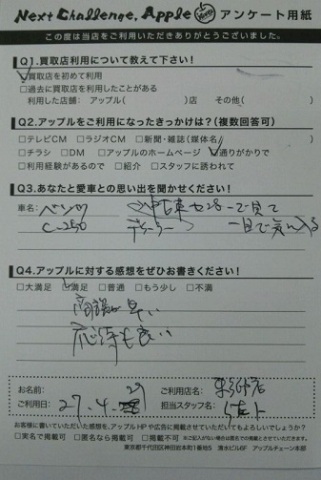 Next Challenge, Apple アンケート用紙
この度は当店をご利用いただきありがとうございました。
Q1.買取店利用について教えて下さい!
□買取店を初めて利用
□過去に買取店を利用したことがある
利用した店舗: アップル( )店 その他( )
Q2.アップルをご利用になったきっかけは?(複数回答可)
□テレビCM □ラジオCM □新聞・雑誌(媒体名 )
□チラシ □DM □アップルのホームページ □通りがかりで
□利用経験があるので □紹介 □スタッフに誘われて
Q3.あなたと愛車との思い出を聞かせください!
車名: ベンツ 中古車センターで見て
C-250 ディーラー 一目で気に入る
Q4.アップルに対する感想をぜひお書きください!
□大満足 □満足 □普通 □もう少し □不満
商談が早い
応待も良い
お名前: ご利用店名:
ご利用日: 27.4. 29 担当スタッフ名:
お客様に書いていただいた感想を、アップルHPや広告に掲載させていただいてもよろしいでしょうか?
□実名で掲載可 □匿名なら掲載可 □掲載不可 ※ご記入がない場合は匿名での掲載とさせていただきます。
東京都千代田区神田岩本町1番地5 清水ビル6F アップルチェーン本部